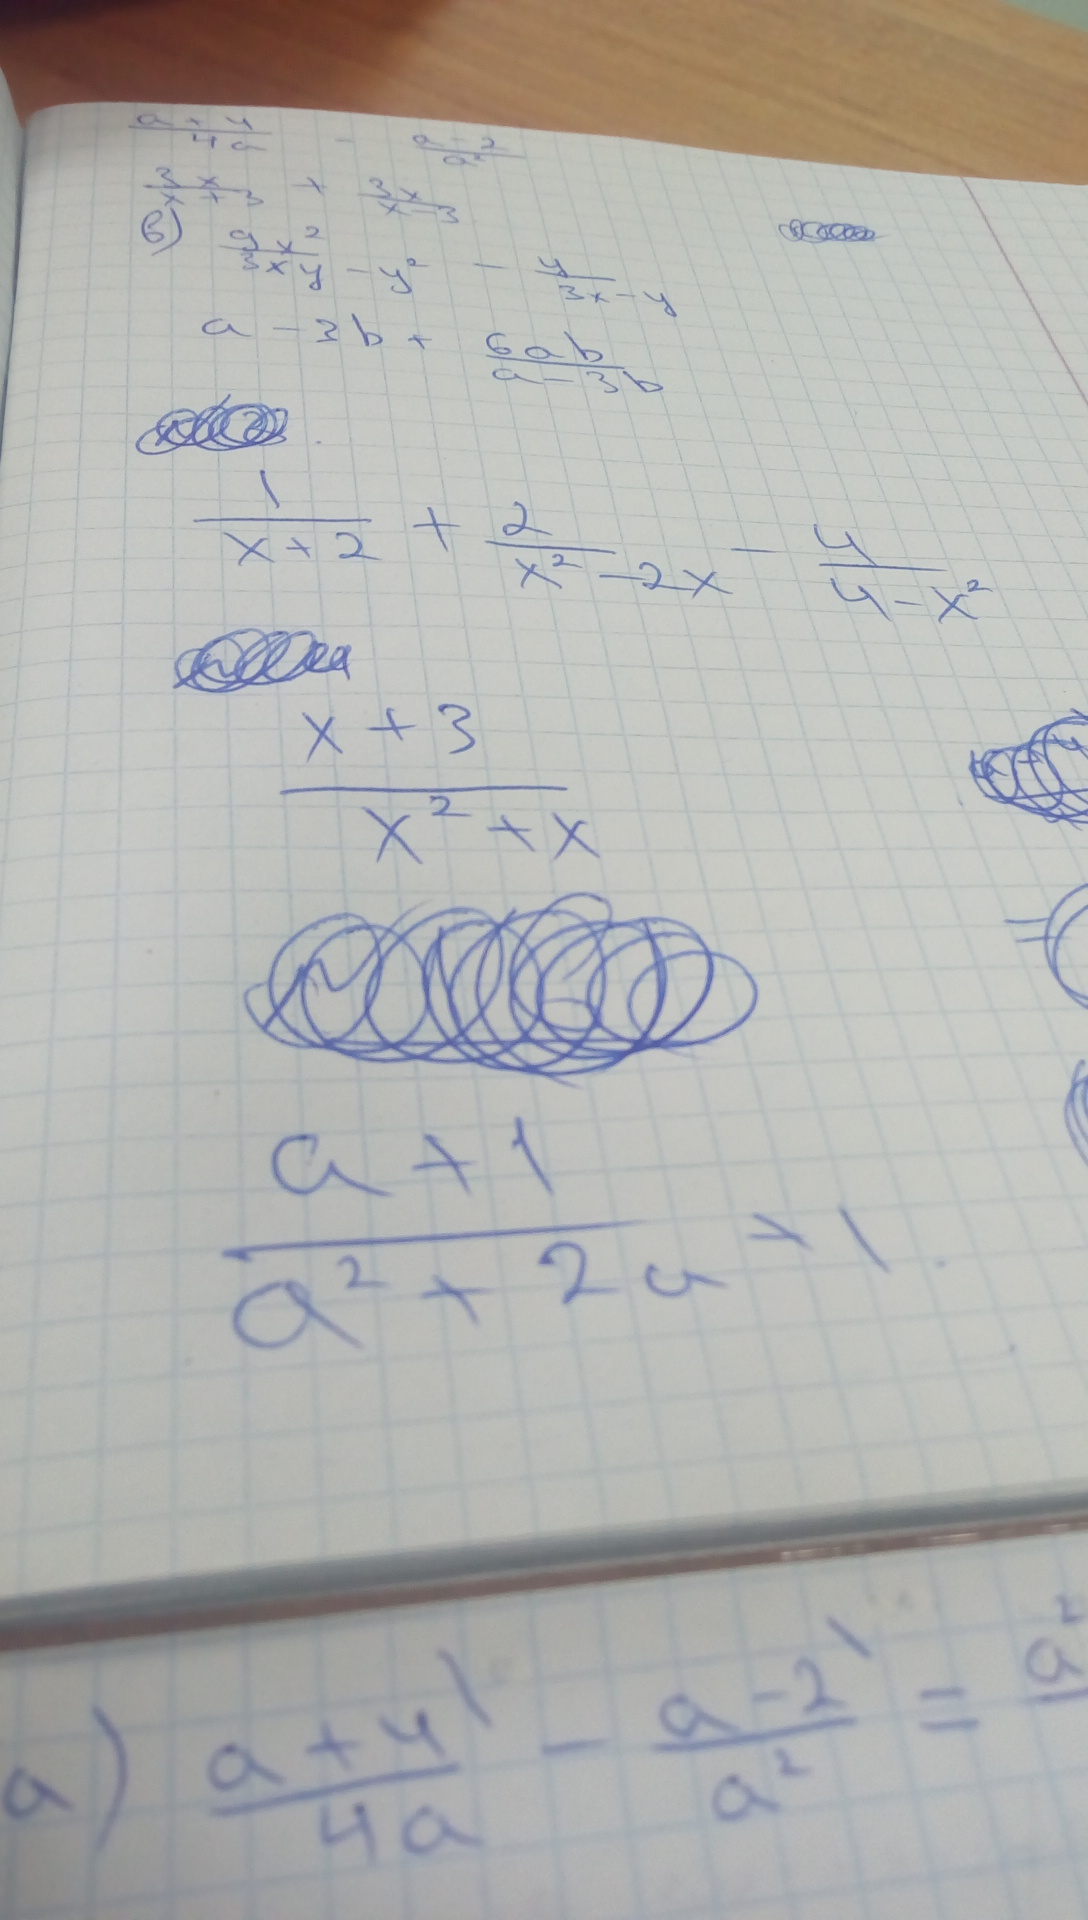 a + 4 / 4a - a - 2 / a²
3x / x + 3 + 3x / x - 3
в) 9x² / 3xy - y² - y / 3x - y
a - 3b + 6ab / a - 3b
1 / x + 2 + 2 / x² - 2x - 4 / 4 - x²
x + 3 / x² + x
a + 1 / a² + 2a + 1
а) a + 4 / 4a - a - 2 / a² = a²